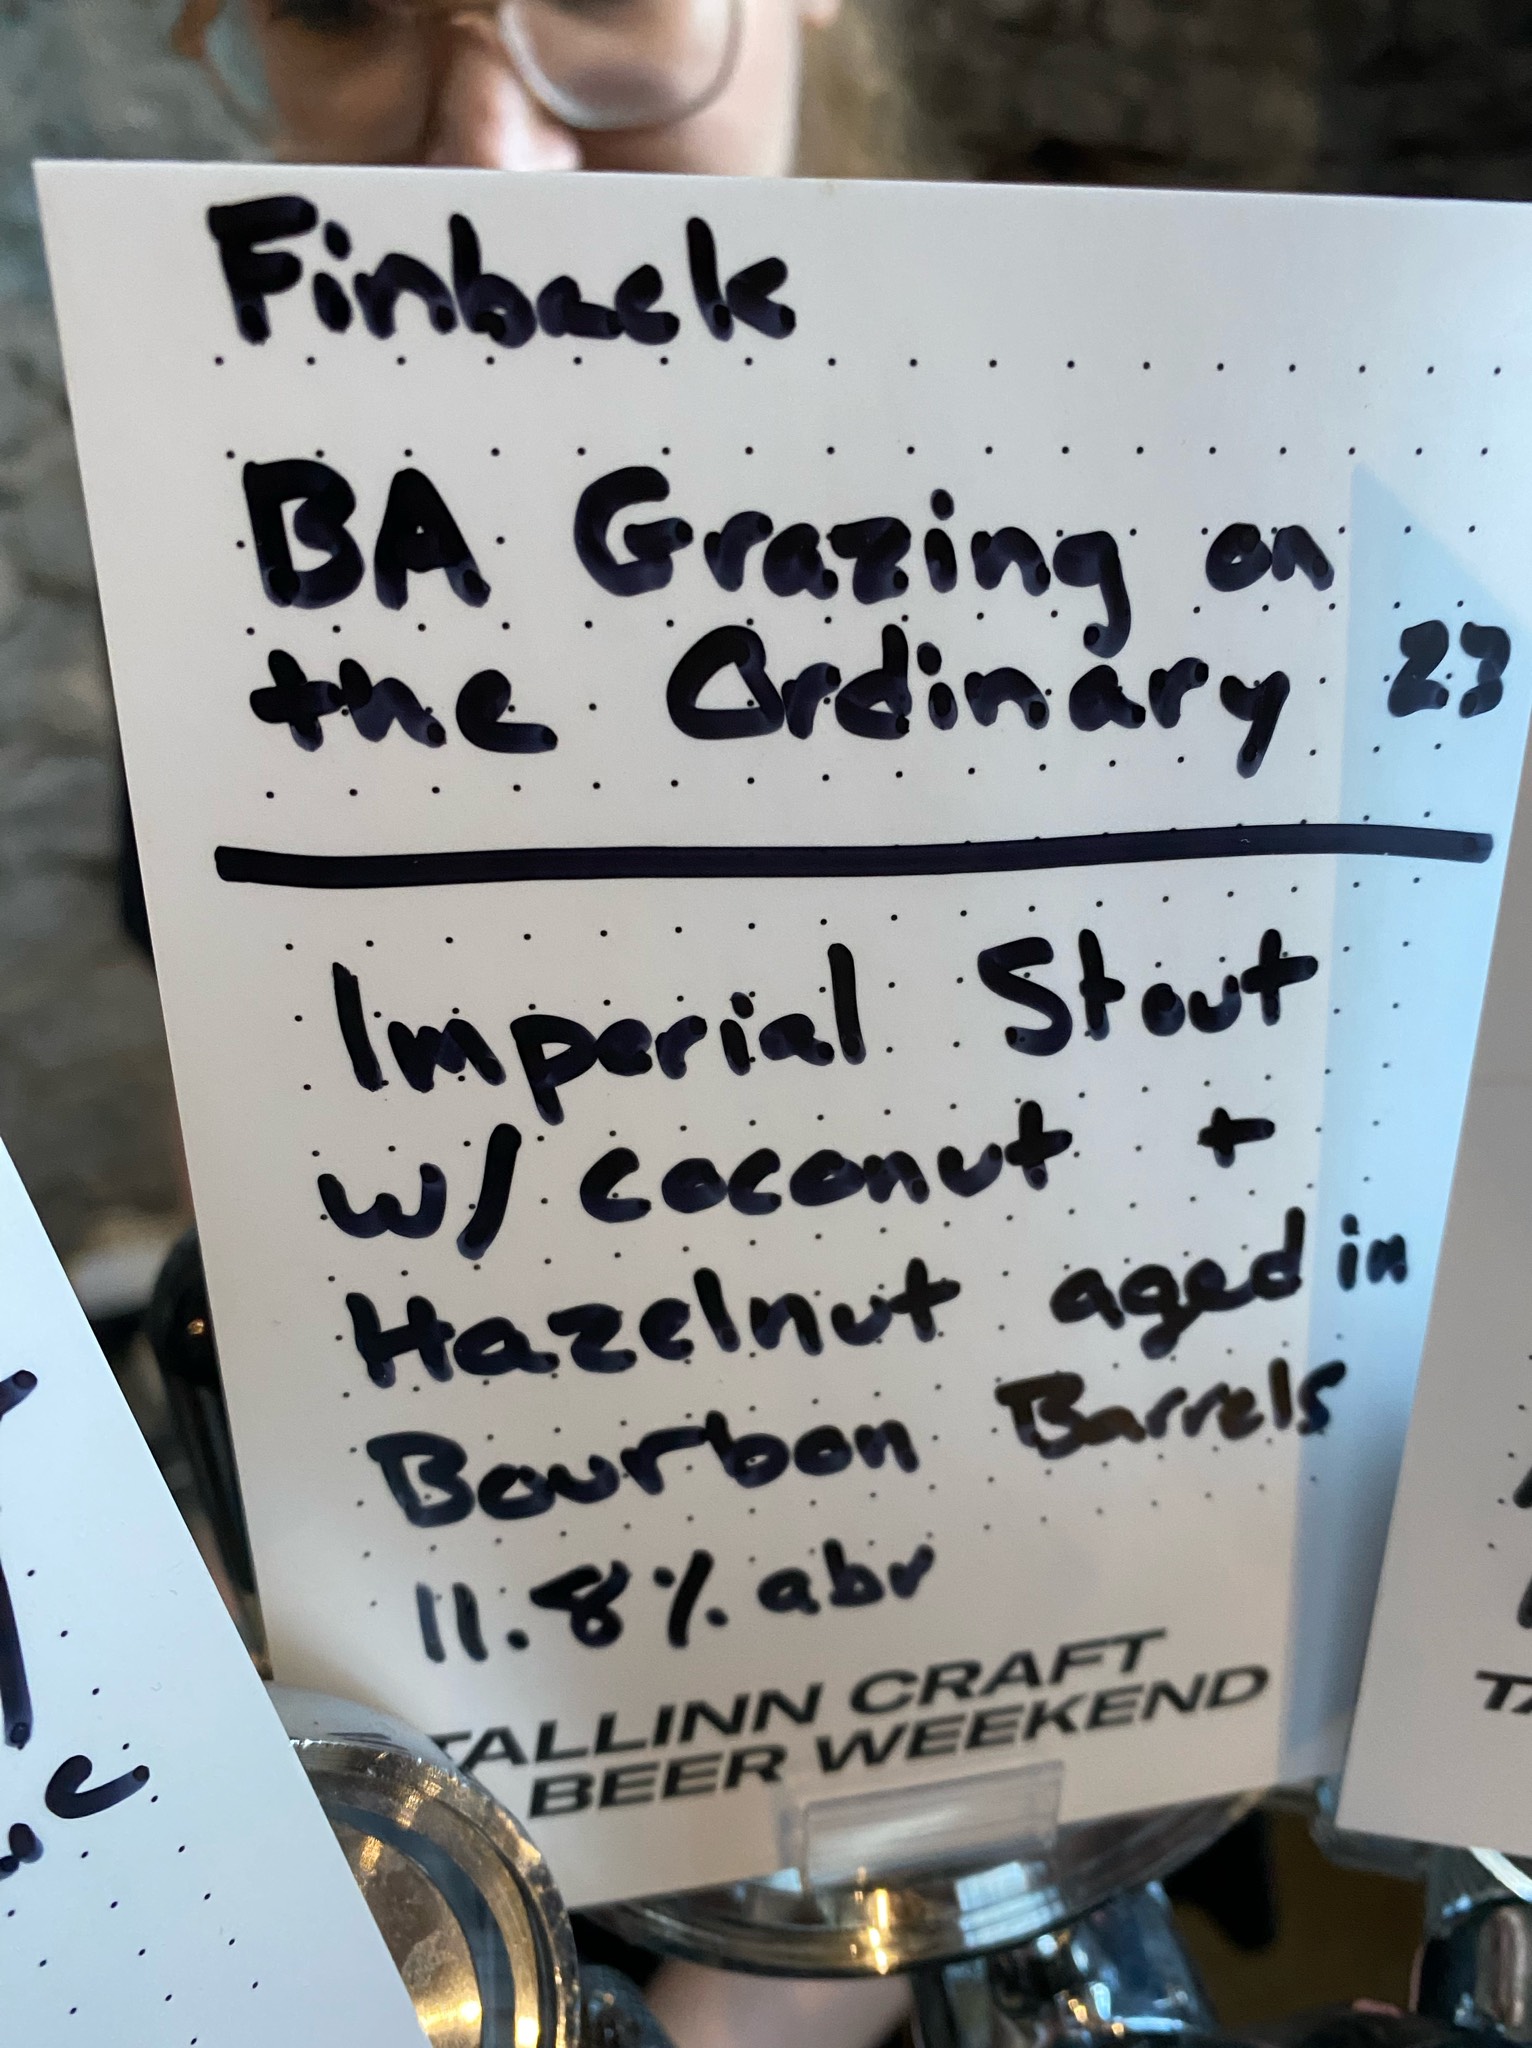 Finback
BA Grazing on
the Ordinary 23
Imperial Stout
w/ coconut +
Hazelnut aged in
Bourbon Barrels
11.8% abv
TALLINN CRAFT
BEER WEEKEND